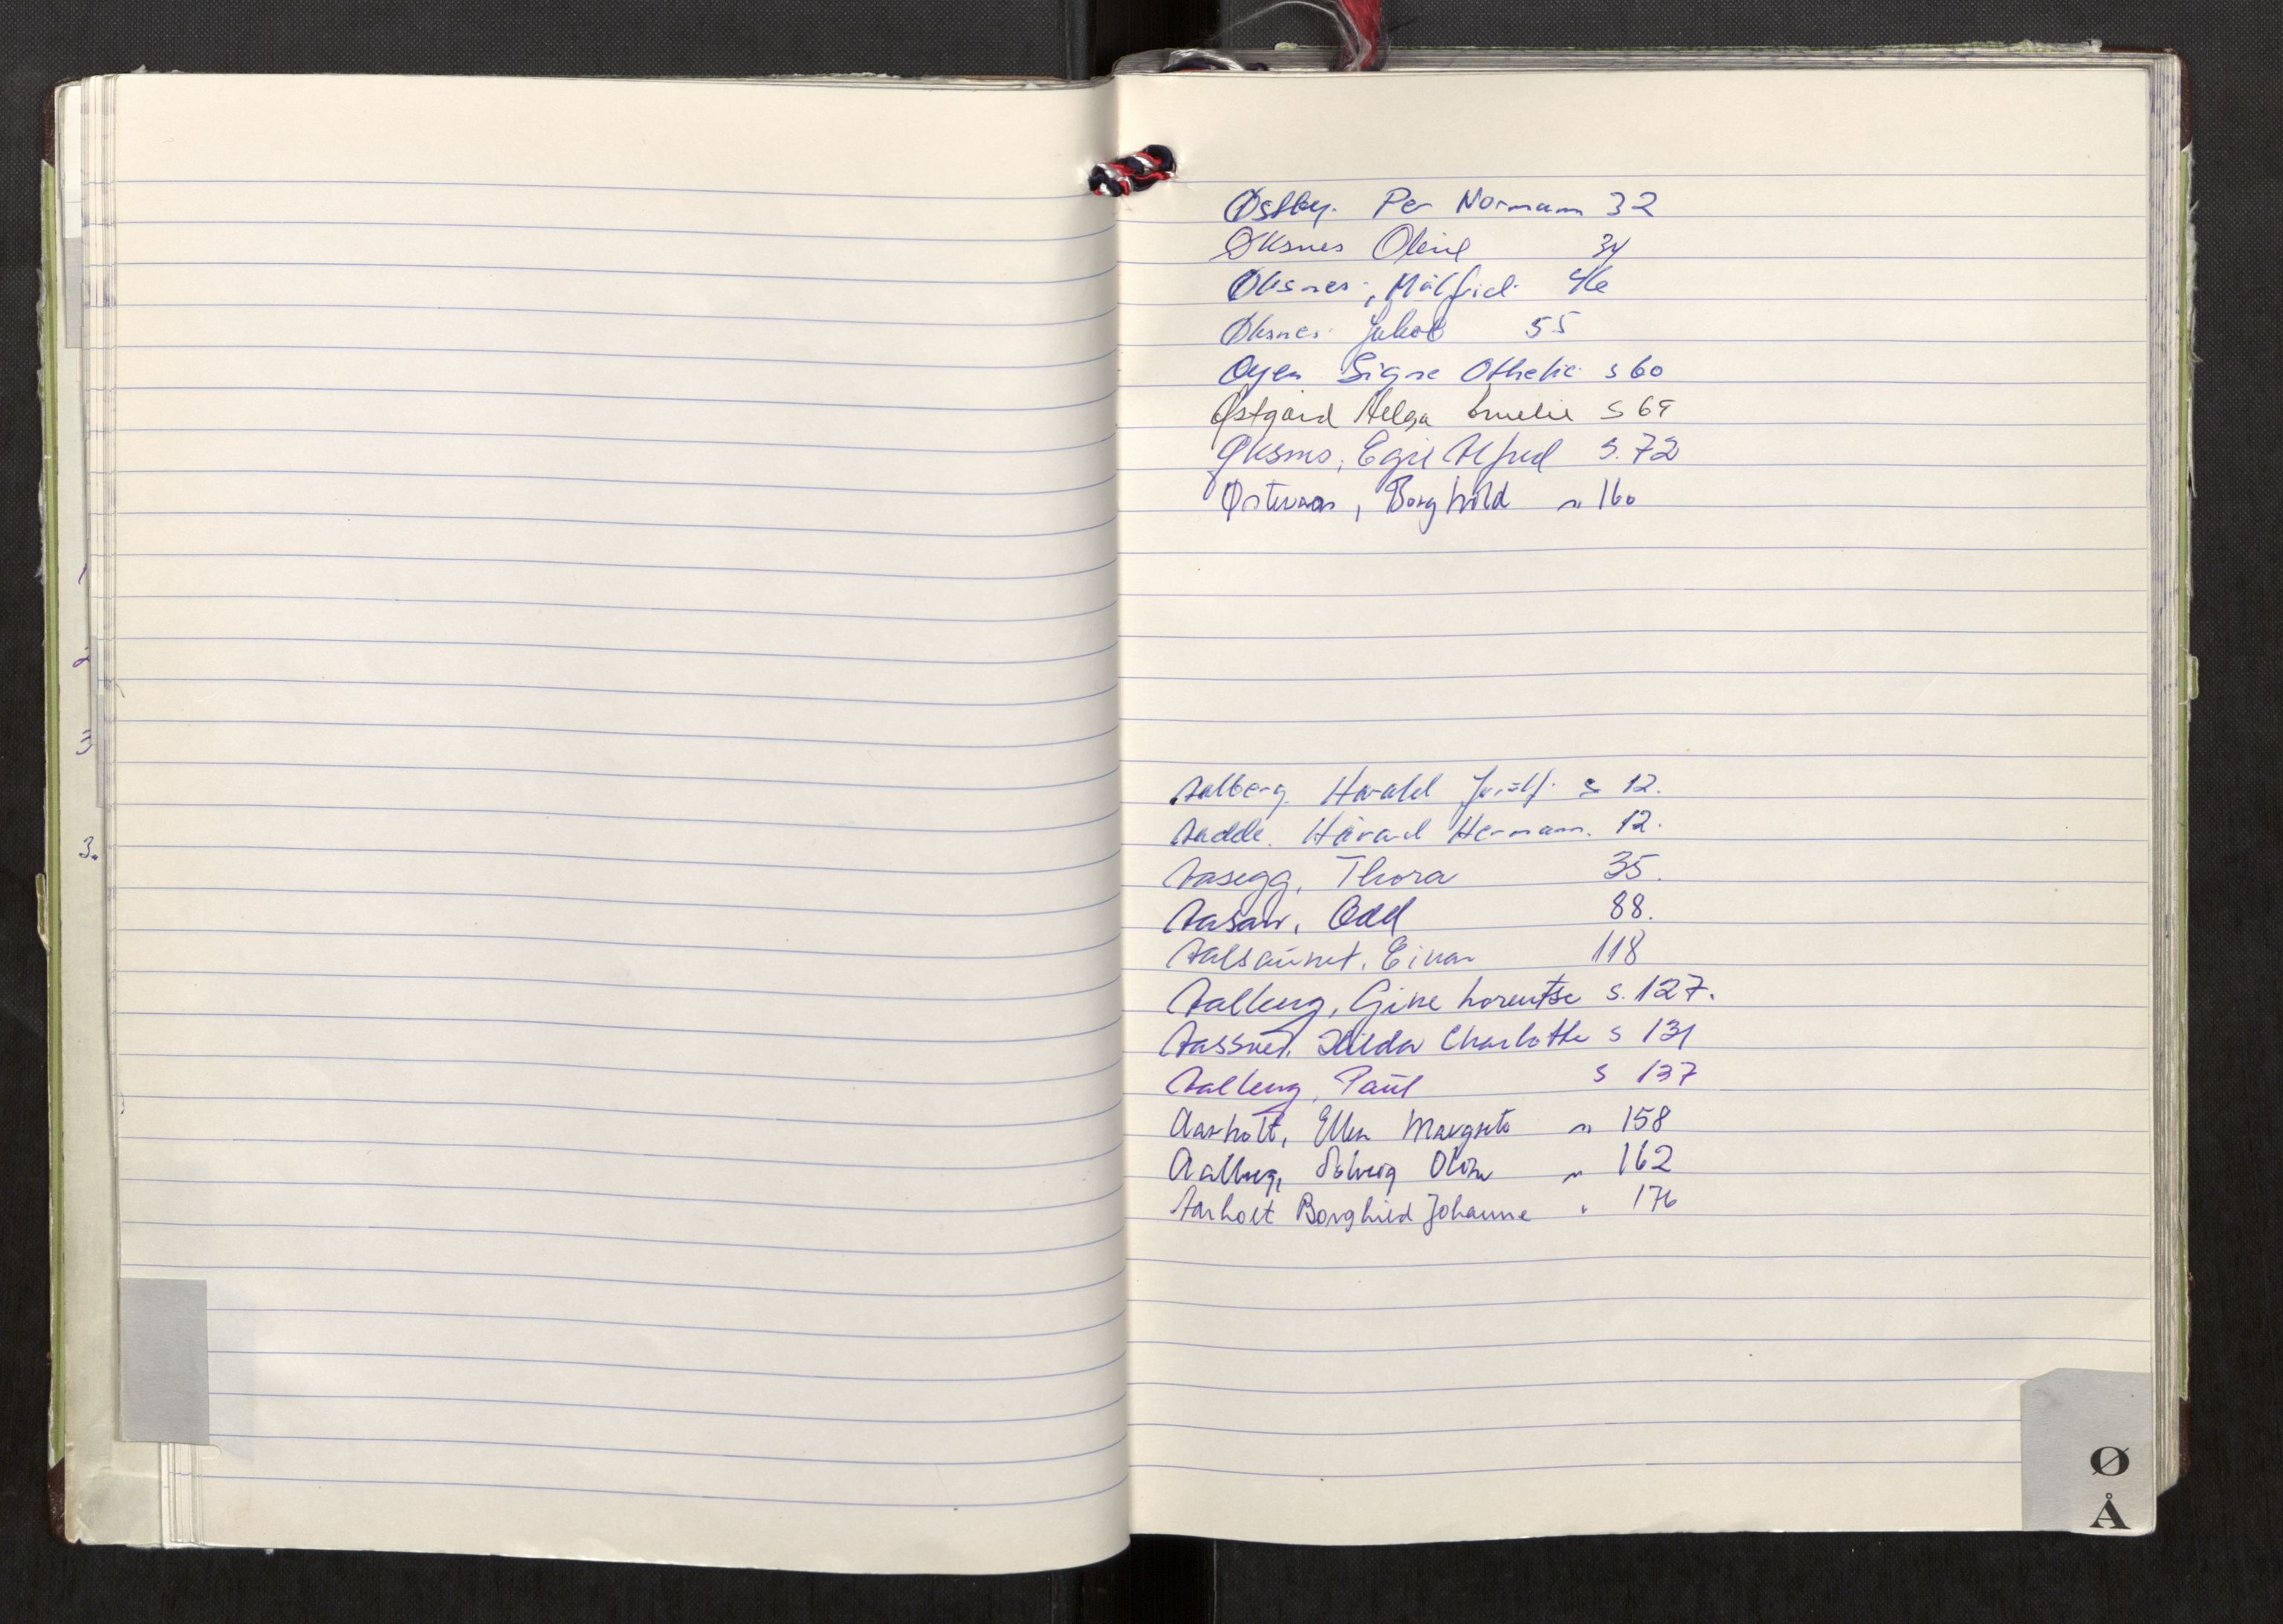 1
2
3
3.
Østby. Per Normann 32
Øksnes Oline 34
Øksnes, Målfrid 46
Øksnes Jakob 55
Øyen Signe Othelie s 60
Østgård Helga Emelie s 69
Øksnes, Egil Alfred s. 72
Østeraas, Borghild " 160
Aalberg. Harald s 12.
Aadde. Håvard Hermann. 12.
Aasegg, Thora 35.
Aasan, Odd 88.
Aalsaunet. Einar 118
Aalberg, Gine Lorentse s. 127.
Aassnes. Hilda Charlotte s 131
Aalberg, Paul s 137
Aarholt, Ellen Margrete " 158
Aalberg, Solveig Oline " 162
Aarholt Borghild Johanne " 176
Ø
Å